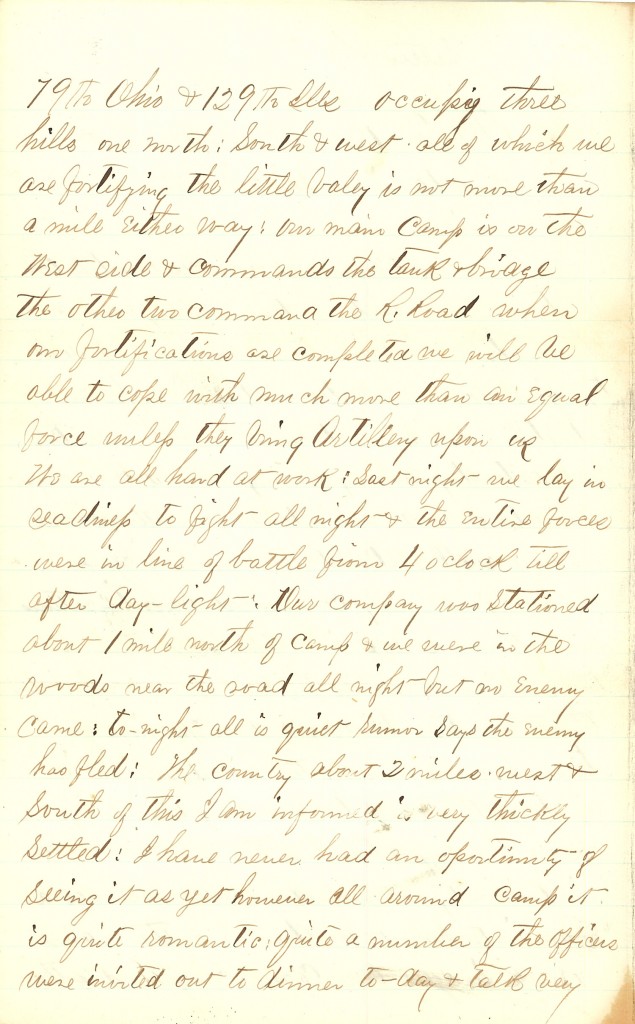 79th Ohio & 129th Ills occupig three
hills one north; South & west all of which we
are fortifying the little valey is not more than
a mile either way; our main camp is on the
West side & commands the tank & bridge
the other two command the R. Road when
our fortifications are completed we will be
able to cope with much more than an equal
force unless they bring Artillery upon us
We are all hard at work: Last night we lay in
readiness to fight all night & the entire forces
were in line of battle from 4 oclock till
after day-light: Our company was stationed
about 1 mile north of camp & we were in the
woods near the road all night but no enemy
came: to-night all is quiet rumor says the enemy
has fled: The country about 2 miles west &
South of this I am informed is very thickly
settled: I have never had an oportinuty of
seeing it as yet however all around camp it
is quite romantic; quite a number of the officers
were invited out to dinner to-day & talk very